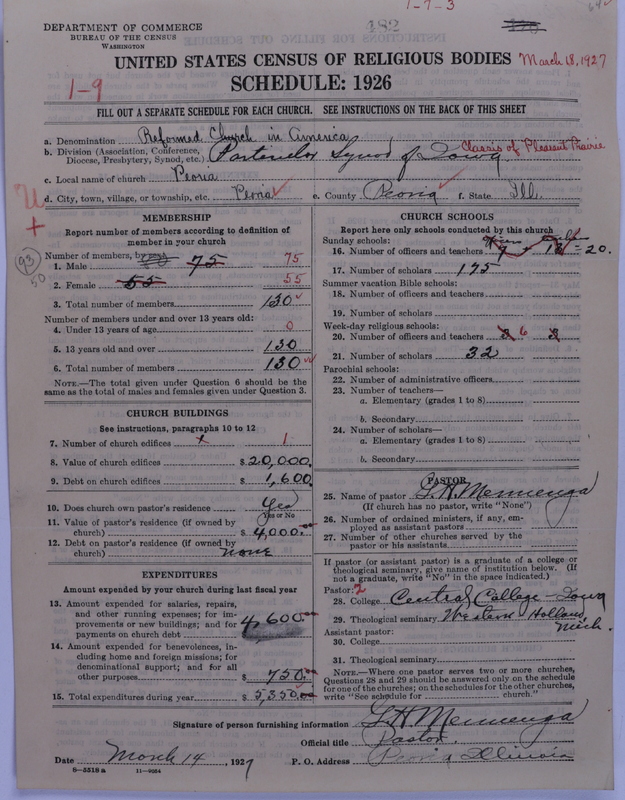 1-7-3
482
DEPARTMENT OF COMMERCE
BUREAU OF THE CENSUS
WASHINGTON
UNITED STATES CENSUS OF RELIGIOUS BODIES
March 18, 1927
SCHEDULE: 1926
1-9
FILL OUT A SEPARATE SCHEDULE FOR EACH CHURCH. SEE INSTRUCTIONS ON THE BACK OF THIS SHEET
a. Denomination Reformed Church in America
b. Division (Association, Conference, Diocese, Presbytery, Synod, etc.) Particular Synod of Iowa Classis of Pleasant Prairie
c. Local name of church Peoria
d. City, town, village, or township, etc. Peoria e. County Peoria f. State Ill.
93
50
MEMBERSHIP
Report number of members according to definition of
member in your church
Number of members, by sex:
1. Male 75 75
2. Female 55 55
3. Total number of members 130
Number of members under and over 13 years old:
4. Under 13 years of age 0
5. 13 years old and over 130
6. Total number of members 130
NOTE.—The total given under Question 6 should be the
same as the total of males and females given under Question 3.
CHURCH BUILDINGS
See instructions, paragraphs 10 to 12
7. Number of church edifices 1
8. Value of church edifices $20,000.
9. Debt on church edifices $1,600
10. Does church own pastor's residence Yes
Yes or No
11. Value of pastor's residence (if owned by
church) $4,000.00
12. Debt on pastor's residence (if owned by
church) none
EXPENDITURES
Amount expended by your church during last fiscal year
13. Amount expended for salaries, repairs,
and other running expenses; for im-
provements or new buildings; and for
payments on church debt 4,600.00
14. Amount expended for benevolences, in-
cluding home and foreign missions; for
denominational support; and for all
other purposes $750.00
15. Total expenditures during year $5,350.00
CHURCH SCHOOLS
Report here only schools conducted by this church
Sunday schools:
16. Number of officers and teachers 20.
17. Number of scholars 175
Summer vacation Bible schools:
18. Number of officers and teachers
19. Number of scholars
Week-day religious schools:
20. Number of officers and teachers 3 6 3
21. Number of scholars 32
Parochial schools:
22. Number of administrative officers
23. Number of teachers—
a. Elementary (grades 1 to 8)
b. Secondary
24. Number of scholars—
a. Elementary (grades 1 to 8)
b. Secondary
PASTOR
25. Name of pastor G. H. Mennenga
(If church has no pastor, write "None")
26. Number of ordained ministers, if any, em-
ployed as assistant pastors
27. Number of other churches served by the
pastor or his assistants
If pastor (or assistant pastor) is a graduate of a college or
theological seminary, give name of institution below. (If
not a graduate, write "No" in the space indicated.)
Pastor: 2
28. College Central College—Iowa
29. Theological seminary Western—Holland, Mich.
Assistant pastor:
30. College
31. Theological seminary
NOTE.—Where one pastor serves two or more churches,
Questions 28 and 29 should be answered only on the schedule
for one of the churches; on the schedules for the other churches,
write "See schedule for church."
Signature of person furnishing information G. H. Mennenga
Official title Pastor.
Date March 14, 1927 P. O. Address Peoria Illinois
8-5518 a 11-9054